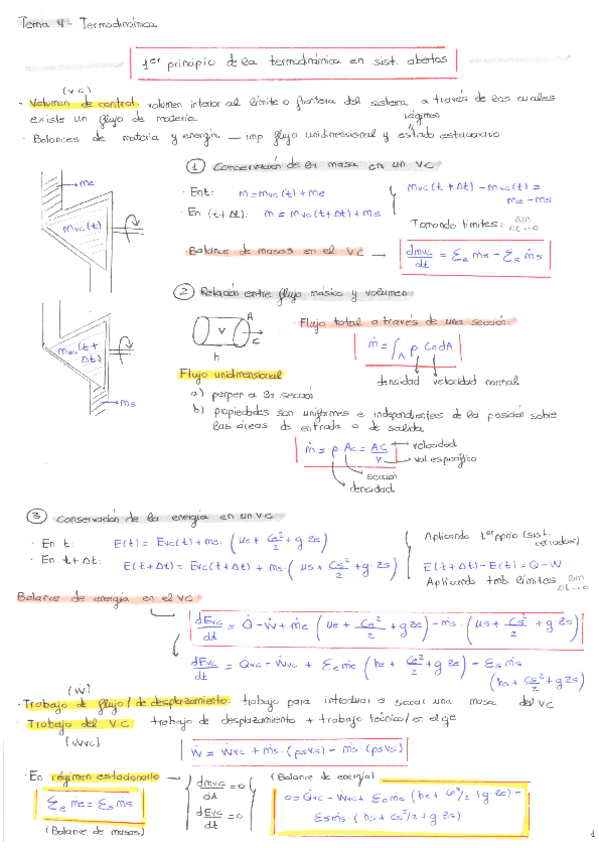 Tema 4 - Termodinámica
1er principio de la termodinámica en sist. abiertos
(VC)
· Volumen de control: volumen interior al límite o frontera del sistema a través de los cuales
existe un flujo de materia.
régimen
· Balances de materia y energía — imp flujo unidimensional y estado estacionario
① Conservación de la masa en un VC
me
mvc(t)
· Ent: m = mvc(t) + me
· En (t+Δt): m = mvc(t+Δt) + ms
mvc(t+Δt) - mvc(t) =
me - ms
Tomando límites: lim Δt→0
Balance de masas en el VC → dmvc/dt = Σe ṁe - Σs ṁs
② Relación entre flujo másico y volumen
mvc(t+Δt)
ms
A
V
C
h
· Flujo total a través de una sección:
ṁ = ∫A ρ CndA
densidad velocidad normal
Flujo unidimensional
a) perper a la sección
b) propiedades son uniformes e independientes de la posición sobre
las áreas de entrada o de salida
ṁ = ρ Ac = AC/v
velocidad
vol específico
sección
densidad
③ Conservación de la energía en un VC
· En t: E(t) = Evc(t) + me · (ue + Ce²/2 + g ze)
· En t+Δt: E(t+Δt) = Evc(t+Δt) + ms · (us + Cs²/2 + g zs)
Aplicando 1er ppio (sist. cerrados)
E(t+Δt) - E(t) = Q - W
Aplicando tmb límites lim Δt→0
Balance de energía en el VC
dEvc/dt = Q̇ - Ẇ + ṁe (ue + Ce²/2 + g ze) - ṁs · (us + Cs²/2 + g zs)
dEvc/dt = Q̇vc - Ẇvc + Σe ṁe · (he + Ce²/2 + g ze) - Σs ṁs
(hs + Cs²/2 + g zs)
(Ẇ)
· Trabajo de flujo / de desplazamiento: trabajo para introducir o sacar una masa del VC
· Trabajo del V.C. trabajo de desplazamiento + trabajo técnico / en el eje
(Ẇvc)
Ẇ = Ẇvc + ṁs · (psvs) - ṁs · (psvs)
· En régimen estacionario → dmvc/dt = 0
dEvc/dt = 0
Σe ṁe = Σs ṁs
(Balance de masas)
(Balance de energía)
0 = Q̇vc - Ẇvc + Σe ṁe (he + Ce²/2 + g ze) -
Σs ṁs · (hs + Cs²/2 + g zs)
1